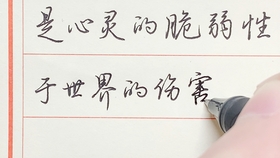 是心灵的脆弱性
于世界的伤害